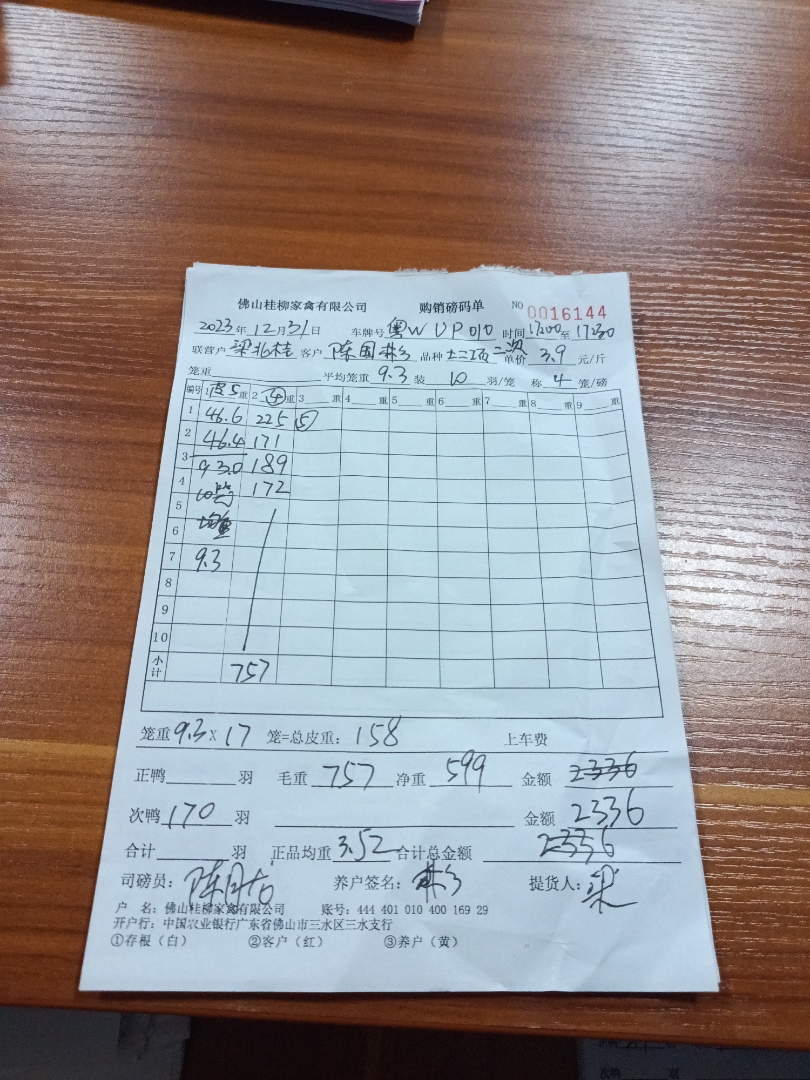 佛山桂柳家禽有限公司 购销磅码单 NO 0016144
2023年12月31日 车牌号 粤W UP010 时间 17:00 至 17:30
联营户 梁北桂 客户 陈国 品种 二次 单价 3.9 元/斤
笼重 平均笼重 9.3 装 10 羽/笼 称 4 笼/磅
编号 1 皮5 重 2 ④ 重 3 重 4 重 5 重 6 重 7 重 8 重 9 重
1 46.6 225 ⑤
2 46.4 171
3 93.0 189
4 10 172
5
6
7 9.3
8
9
10
小计 757
笼重 9.3 X 17 笼=总皮重: 158 上车费
正鸭 羽 毛重 757 净重 599 金额 2336
次鸭 170 羽 金额 2336
合计 羽 正品均重 3.52 合计总金额 2336
司磅员: 养户签名: 提货人: 梁
户 名: 佛山桂柳家禽有限公司 账号: 444 401 010 400 169 29
开户行: 中国农业银行广东省佛山市三水区三水支行
①存根(白) ②客户(红) ③养户(黄)
次鸭 羽